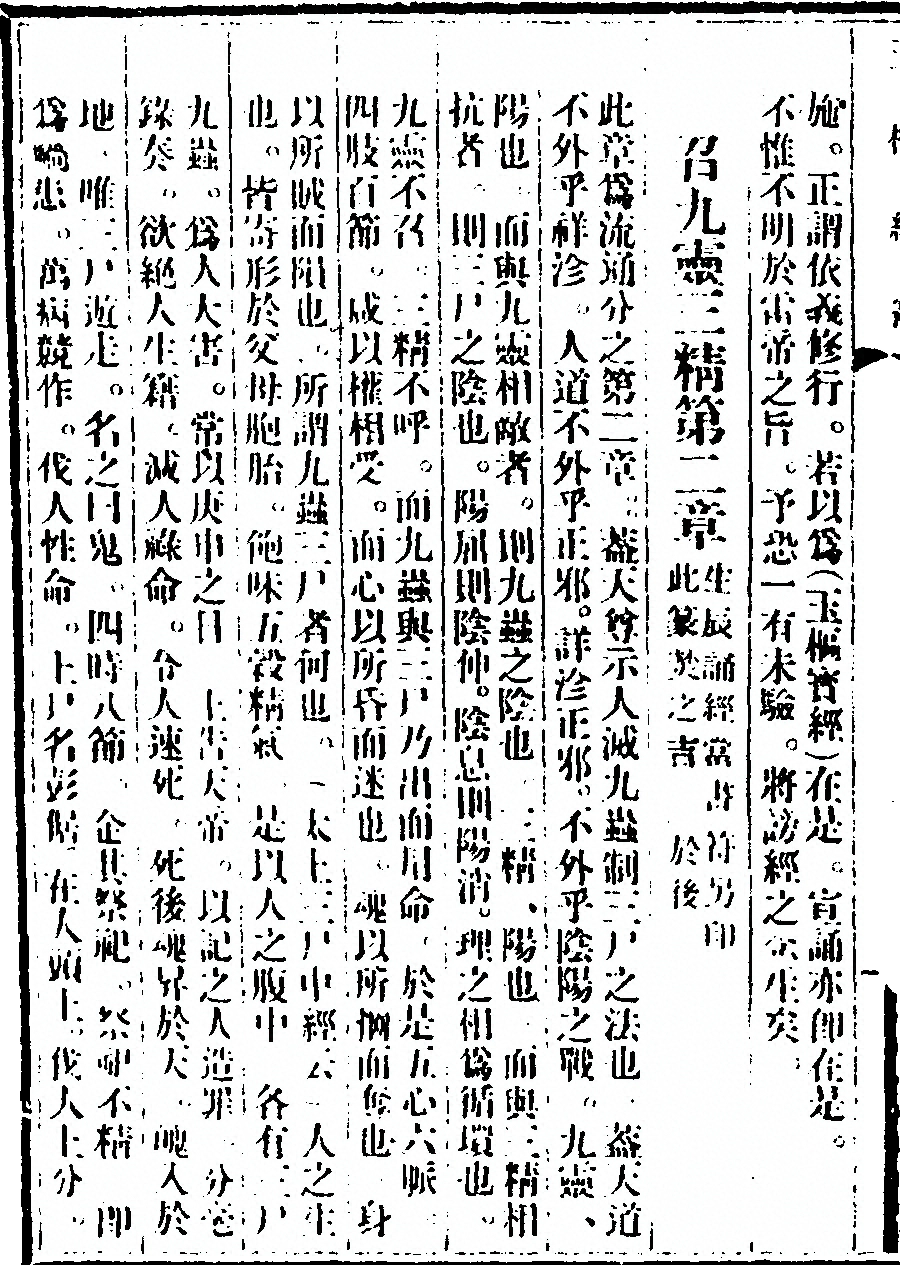 施。正謂依義修行。若以爲(玉樞寶經)在是。宣誦亦卽在是。
不惟不明於雷帝之旨。予恐一有未驗。將謗經之念生矣。
召九靈三精第二章
生辰誦經當書符另印
此篆焚之吉 於後
此章爲流通分之第二章。葢天尊示人滅九蟲制三尸之法也。葢天道
不外乎祥沴。人道不外乎正邪。詳沴正邪。不外乎陰陽之戰。九靈、
陽也。而與九靈相敵者。則九蟲之陰也。三精、陽也。而與三精相
抗者。則三尸之陰也。陽屈則陰伸。陰息則陽消。理之相爲循環也。
九靈不召。三精不呼。而九蟲與三尸乃出而用命。於是五心六脈
四肢百節。咸以權相受。而心以所昏而迷也。魂以所惘而奪也。身
以所賊而隕也。所謂九蟲三尸者何也。太上三尸中經云。人之生
也。皆寄形於父母胞胎。飽味五穀精氣。是以人之腹中。各有三尸
九蟲。爲人大害。常以庚申之日。上告天帝。以記之人造罪。分毫
錄奏。欲絕人生籍。減人祿命。令人速死。死後魂昇於天。魄入於
地。唯三尸遊走。名之曰鬼。四時八節。企其祭祀。祭祀不精。卽
爲禍患。萬病競作。伐人性命。上尸名彭倨。在人頭上。伐人上分。